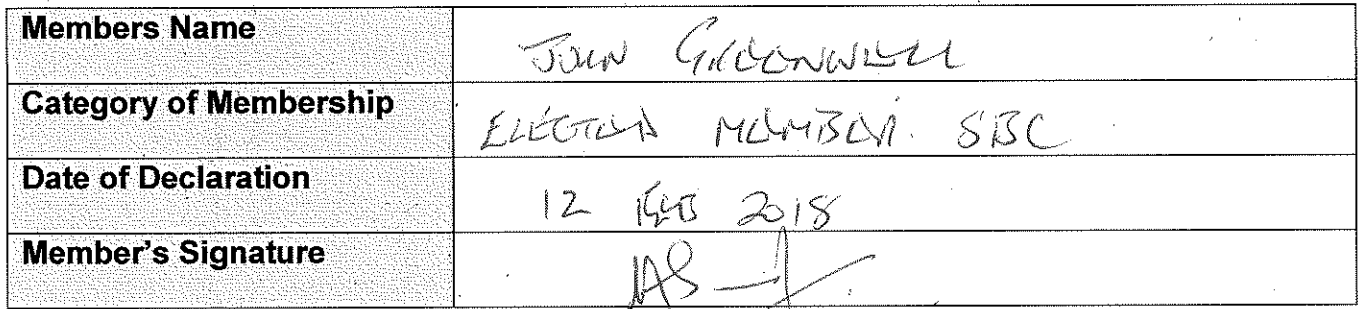 Members Name JOHN GREENWELL
Category of Membership ELECTED MEMBER. SBC
Date of Declaration 12 FEB 2018
Member's Signature